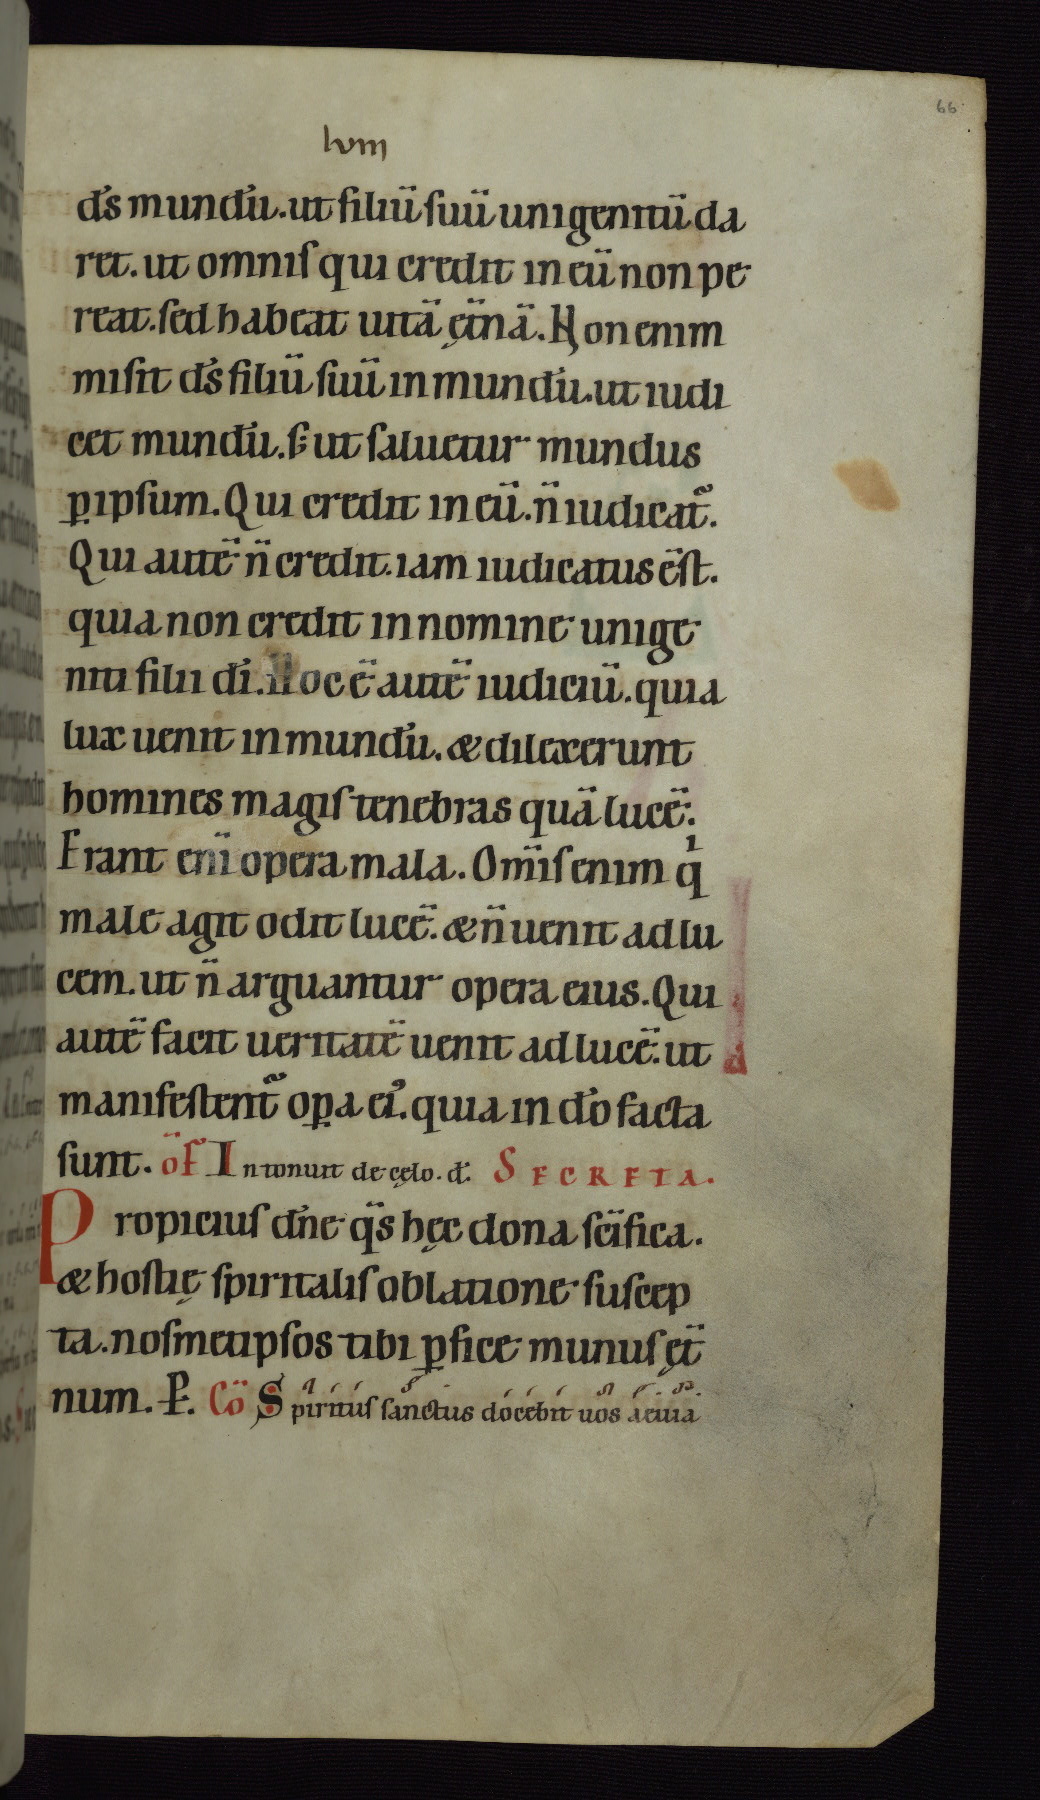 66
lviii
ds̄ mundū. ut filiū ſuū unigenitū da
ret. ut omniſ qui credit in eū non pe
reat. ſed habeat uitā ęt̄nā. Non enim
miſit ds̄ filiū ſuū in mundū. ut iudi
cet mundū. ſ; ut ſaluetur mundus
ꝑ ipſum. Qui credit in eū. n̄ iudicat᷑.
Qui autē n̄ credit. iam iudicatus ēſt.
quia non credit in nomine unige
niti filii dī. Hoc ē autē iudiciū. quia
lux uenit in mundū. & dilexerunt
homines magiſ tenebras quā lucē.
Erant enī opera mala. Om̄iſ enim qͥ
male agit odit lucē. & n̄ uenit ad lu
cem. ut n̄ arguantur opera eius. Qui
autē facit ueritatē uenit ad lucē. ut
manifeſtent᷑ oꝑa ei᾽. quia in dō facta
sunt. of̄ Intonuit de cęlo. d. SECRETA.
Propiciuſ dn̄e qs̄ hęc dona ſcīfica.
& hoſtię ſpiritaliſ oblatione ſuſcep
ta. noſmetipſos tibi ꝑfice munuſ ęt̄
num. P. Cō Spirituſ ſanctus docebit uos aeuia